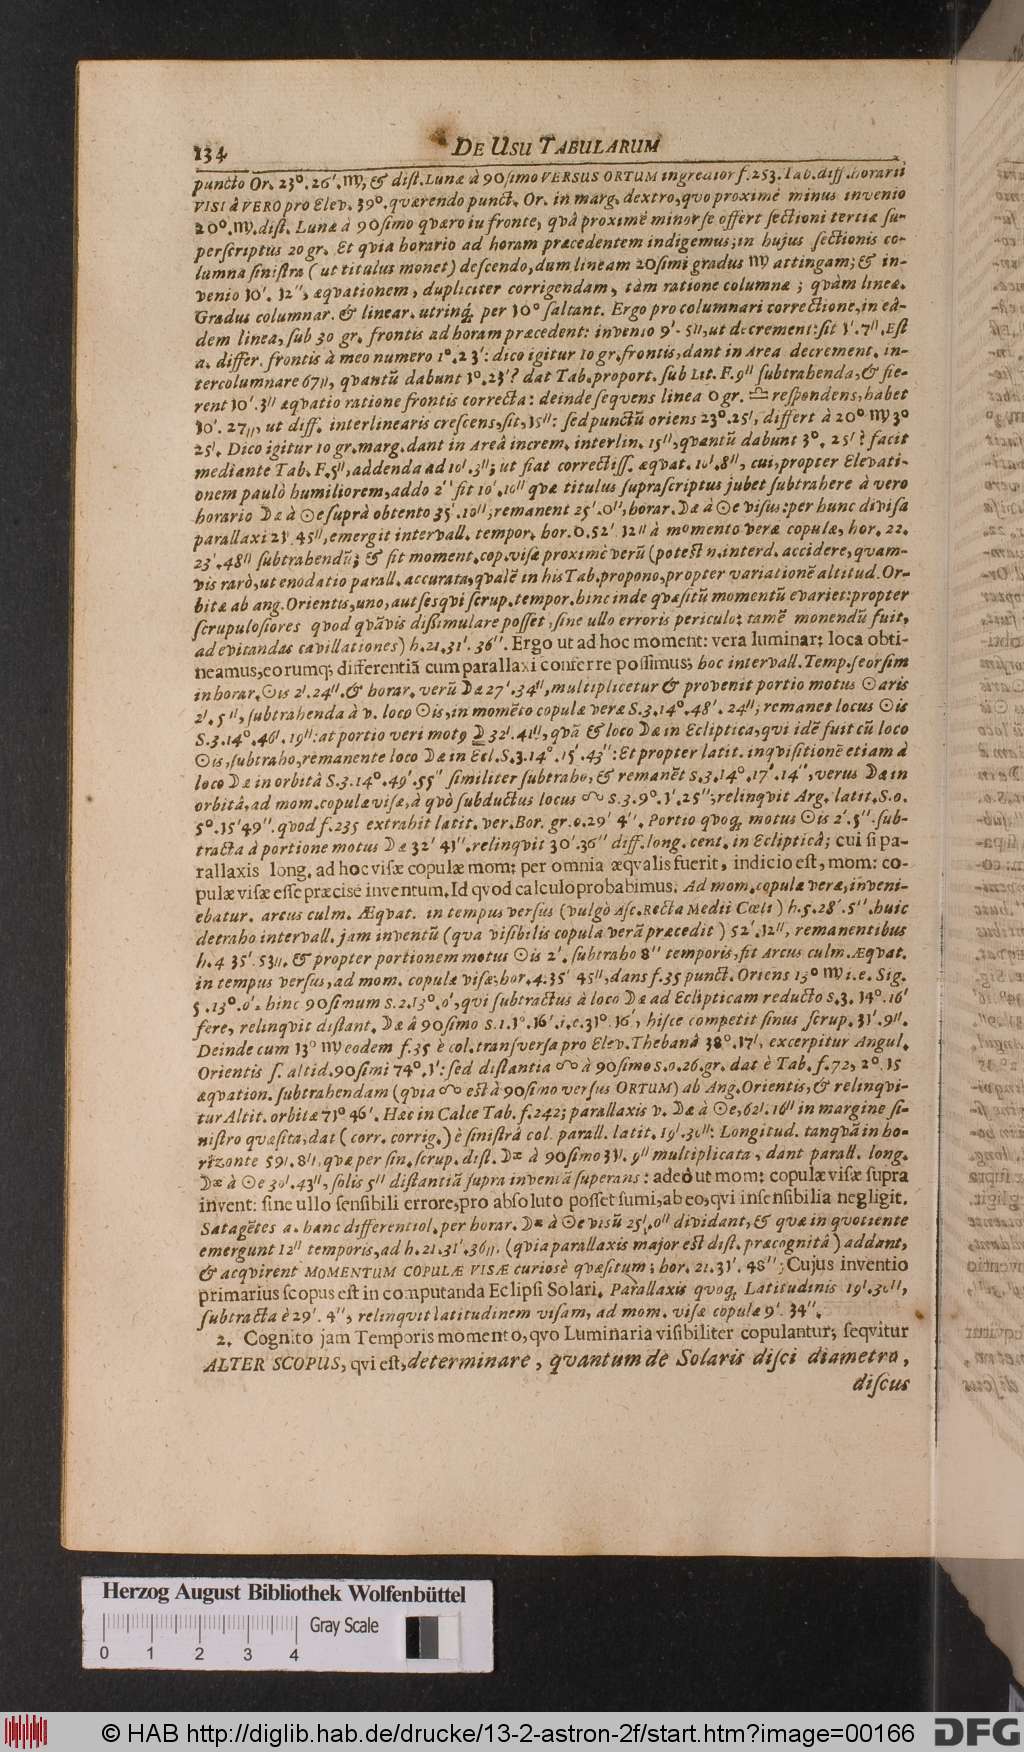 134 DE USU TABULARUM
puncto Or. 23°. 26'. ♍, & dist. Lunæ à 90simo VERSUS ORTUM ingredior f. 253. Tab. diff. horarii
VISI à VERO pro Elev. 39°. qværendo punct. Or. in marg. dextro, qvo proximè minus invenio
20°. ♍. dist. Lunæ à 90simo qværo in fronte, qvâ proximè minor se offert sectioni tertiæ su-
perscriptus 20 gr. Et qvia horario ad horam præcedentem indigemus; in hujus sectionis co-
lumna sinistra ( ut titulus monet) descendo, dum lineam 20simi gradus ♍ attingam; & in-
venio 10'. 12'', æqvationem, dupliciter corrigendam, tàm ratione columnæ ; qvàm lineæ.
Gradus columnar. & linear. utrinq; per 10° saltant. Ergo pro columnari correctione, in eâ-
dem linea, sub 30 gr. frontis ad horam præcedent: invenio 9'. 5'', ut decrement: sit 1'. 7''. Est
a. differ. frontis à meo numero 1°. 23': dico igitur 10 gr. frontis, dant in Area decrement. in-
tercolumnare 67'', qvantũ dabunt 1°. 23'? dat Tab. proport. sub Lit. F. 9'' subtrahenda, & fie-
rent 10'. 3'' æqvatio ratione frontis correcta: deinde seqvens linea 0 gr. ♎ respondens, habet
10'. 27'', ut diff. interlinearis crescens, sit, 15'': sed punctũ oriens 23°. 25', differt à 20° ♍ 3°
25'. Dico igitur 10 gr. marg. dant in Areâ increm. interlin. 15'', qvantũ dabunt 3°. 25'? facit
mediante Tab. F. 5'', addenda ad 10'. 3''; ut fiat correctiss. æqvat. 10'. 8'', cui, propter Elevati-
onem paulò humiliorem, addo 2'' fit 10'. 10'' qvæ titulus suprascriptus jubet subtrahere à vero
horario ☽æ à ☉e suprà obtento 35'. 10''; remanent 25'. 0'', horar. ☽æ à ☉e visus: per hunc divisa
parallaxi 21'. 45'', emergit intervall. tempor. hor. 0. 52'. 12'' à momento veræ copulæ, hor. 22.
23'. 48'' subtrahendũ; & fit moment. cop. visæ proximè verũ (potest n. interd. accidere, qvam-
vis rarò, ut enodatio parall. accurata, qvalẽ in his Tab. propono, propter variationẽ altitud. Or-
bitæ ab ang. Orientis, uno, aut sesqvi scrup. tempor. hinc inde qvæsitũ momentũ evariet: propter
scrupulosiores qvod qvãvis dissimulare posset, sine ullo erroris periculo: tamẽ monendũ fuit,
ad evitandas cavillationes) h. 21. 31'. 36''. Ergo ut ad hoc moment: vera luminar: loca obti-
neamus, eorumq; differentiã cum parallaxi conferre possimus; hoc intervall. Temp. seorsim
in horar. ☉is 2'. 24''. & horar. verũ ☽æ 27'. 34'', multiplicetur & provenit portio motus ☉aris
2'. 5'', subtrahenda à v. loco ☉is, in momẽto copulæ veræ S. 3. 14°. 48'. 24''; remanet locus ☉is
S. 3. 14°. 46'. 19'': at portio veri motꝰ ☽ 32'. 41'', qvã & loco ☽æ in Ecliptica, qvi idẽ fuit cũ loco
☉is, subtraho, remanente loco ☽æ in Ecl. S. 3. 14°. 15'. 43'': Et propter latit. inqvisitionẽ etiam à
loco ☽æ in orbitâ S. 3. 14°. 49'. 55'' similiter subtraho, & remanẽt S. 3. 14°. 17'. 14'', verus ☽æ in
orbitâ, ad mom. copulæ visæ, à qvò subductus locus ☊ S. 3. 9°. 1'. 25''; relinqvit Arg. latit. S. 0.
5°. 15' 49''. qvod f. 235 extrahit latit. ver. Bor. gr. 0. 29' 4''. Portio qvoq; motus ☉is 2'. 5''. sub-
tracta à portione motus ☽æ 32' 41''. relinqvit 30'. 36'' diff. long. cent. in Eclipticâ; cui si pa-
rallaxis long. ad hoc visæ copulæ mom: per omnia æqvalis fuerit, indicio est, mom: co-
pulæ visæ esse præcisè inventum. Id qvod calculo probabimus. Ad mom. copulæ veræ, inveni-
ebatur. arcus culm. Æqvat. in tempus versus (vulgò Asc. Recta Medii Cœli) h. 5. 28'. 5''. huic
detraho intervall. jam inventũ (qva visibilis copula verã præcedit) 52'. 12'', remanentibus
h. 4 35'. 53''. & propter portionem motus ☉is 2'. subtraho 8'' temporis, fit Arcus culm. Æqvat.
in tempus versus, ad mom. copulæ visæ, hor. 4. 35' 45'', dans f. 35 punct. Oriens 13° ♍ i. e. Sig.
5. 13°. 0'. hinc 90simum s. 2. 13°. 0', qvi subtractus à loco ☽æ ad Eclipticam reducto s. 3. 14°. 16'
fere, relinqvit distant. ☽æ à 90simo s. 1. 1°. 16'. i. e. 31°. 16', hisce competit sinus scrup. 31'. 9''.
Deinde cum 13° ♍ eodem f. 35 è col. transversa pro Elev. Thebanâ 38°. 17', excerpitur Angul.
Orientis s. altid. 90simi 74°. 1': sed distantia ☊ à 90simo s. 0. 26. gr. dat è Tab. f. 72, 2°. 15
æqvation. subtrahendam (qvia ☊ est à 90simo versus ORTUM) ab Ang. Orientis, & relinqvi-
tur Altit. orbitæ 71° 46'. Hæc in Calce Tab. f. 242; parallaxis v. ☽æ à ☉e, 62'. 16'' in margine si-
nistro qvæsita, dat ( corr. corrig.) è sinistrâ col. parall. latit. 19'. 30'': Longitud. tanqvã in ho-
rizonte 59'. 8'', qvæ per sin. scrup. dist. ☽æ à 90simo 31'. 9'' multiplicata, dant parall. long.
☽æ à ☉e 30'. 43'', solis 5'' distantiã supra inventã superans: adeò ut mom: copulæ visæ supra
invent: sine ullo sensibili errore, pro absoluto posset sumi, ab eo, qvi insensibilia negligit.
Satagẽtes a. hanc differentiol. per horar. ☽æ à ☉e visũ 25'. 0'' dividant, & qvæ in qvotiente
emergunt 12'' temporis, ad h. 21. 31'. 36''. (qvia parallaxis major est dist. præcognitâ) addant,
& acqvirent MOMENTUM COPULÆ VISÆ curiosè qvæsitum; hor. 21. 31'. 48''; Cujus inventio
primarius scopus est in computanda Eclipsi Solari. Parallaxis qvoq; Latitudinis 19'. 30'',
subtracta è 29'. 4'', relinqvit latitudinem visam, ad mom. visæ copulæ 9'. 34''.
2. Cognito jam Temporis momento, qvo Luminaria visibiliter copulantur; seqvitur
ALTER SCOPUS, qvi est, determinare, qvantum de Solaris disci diametro,
discus
Herzog August Bibliothek Wolfenbüttel
Gray Scale
0 1 2 3 4
© HAB http://diglib.hab.de/drucke/13-2-astron-2f/start.htm?image=00166
DFG